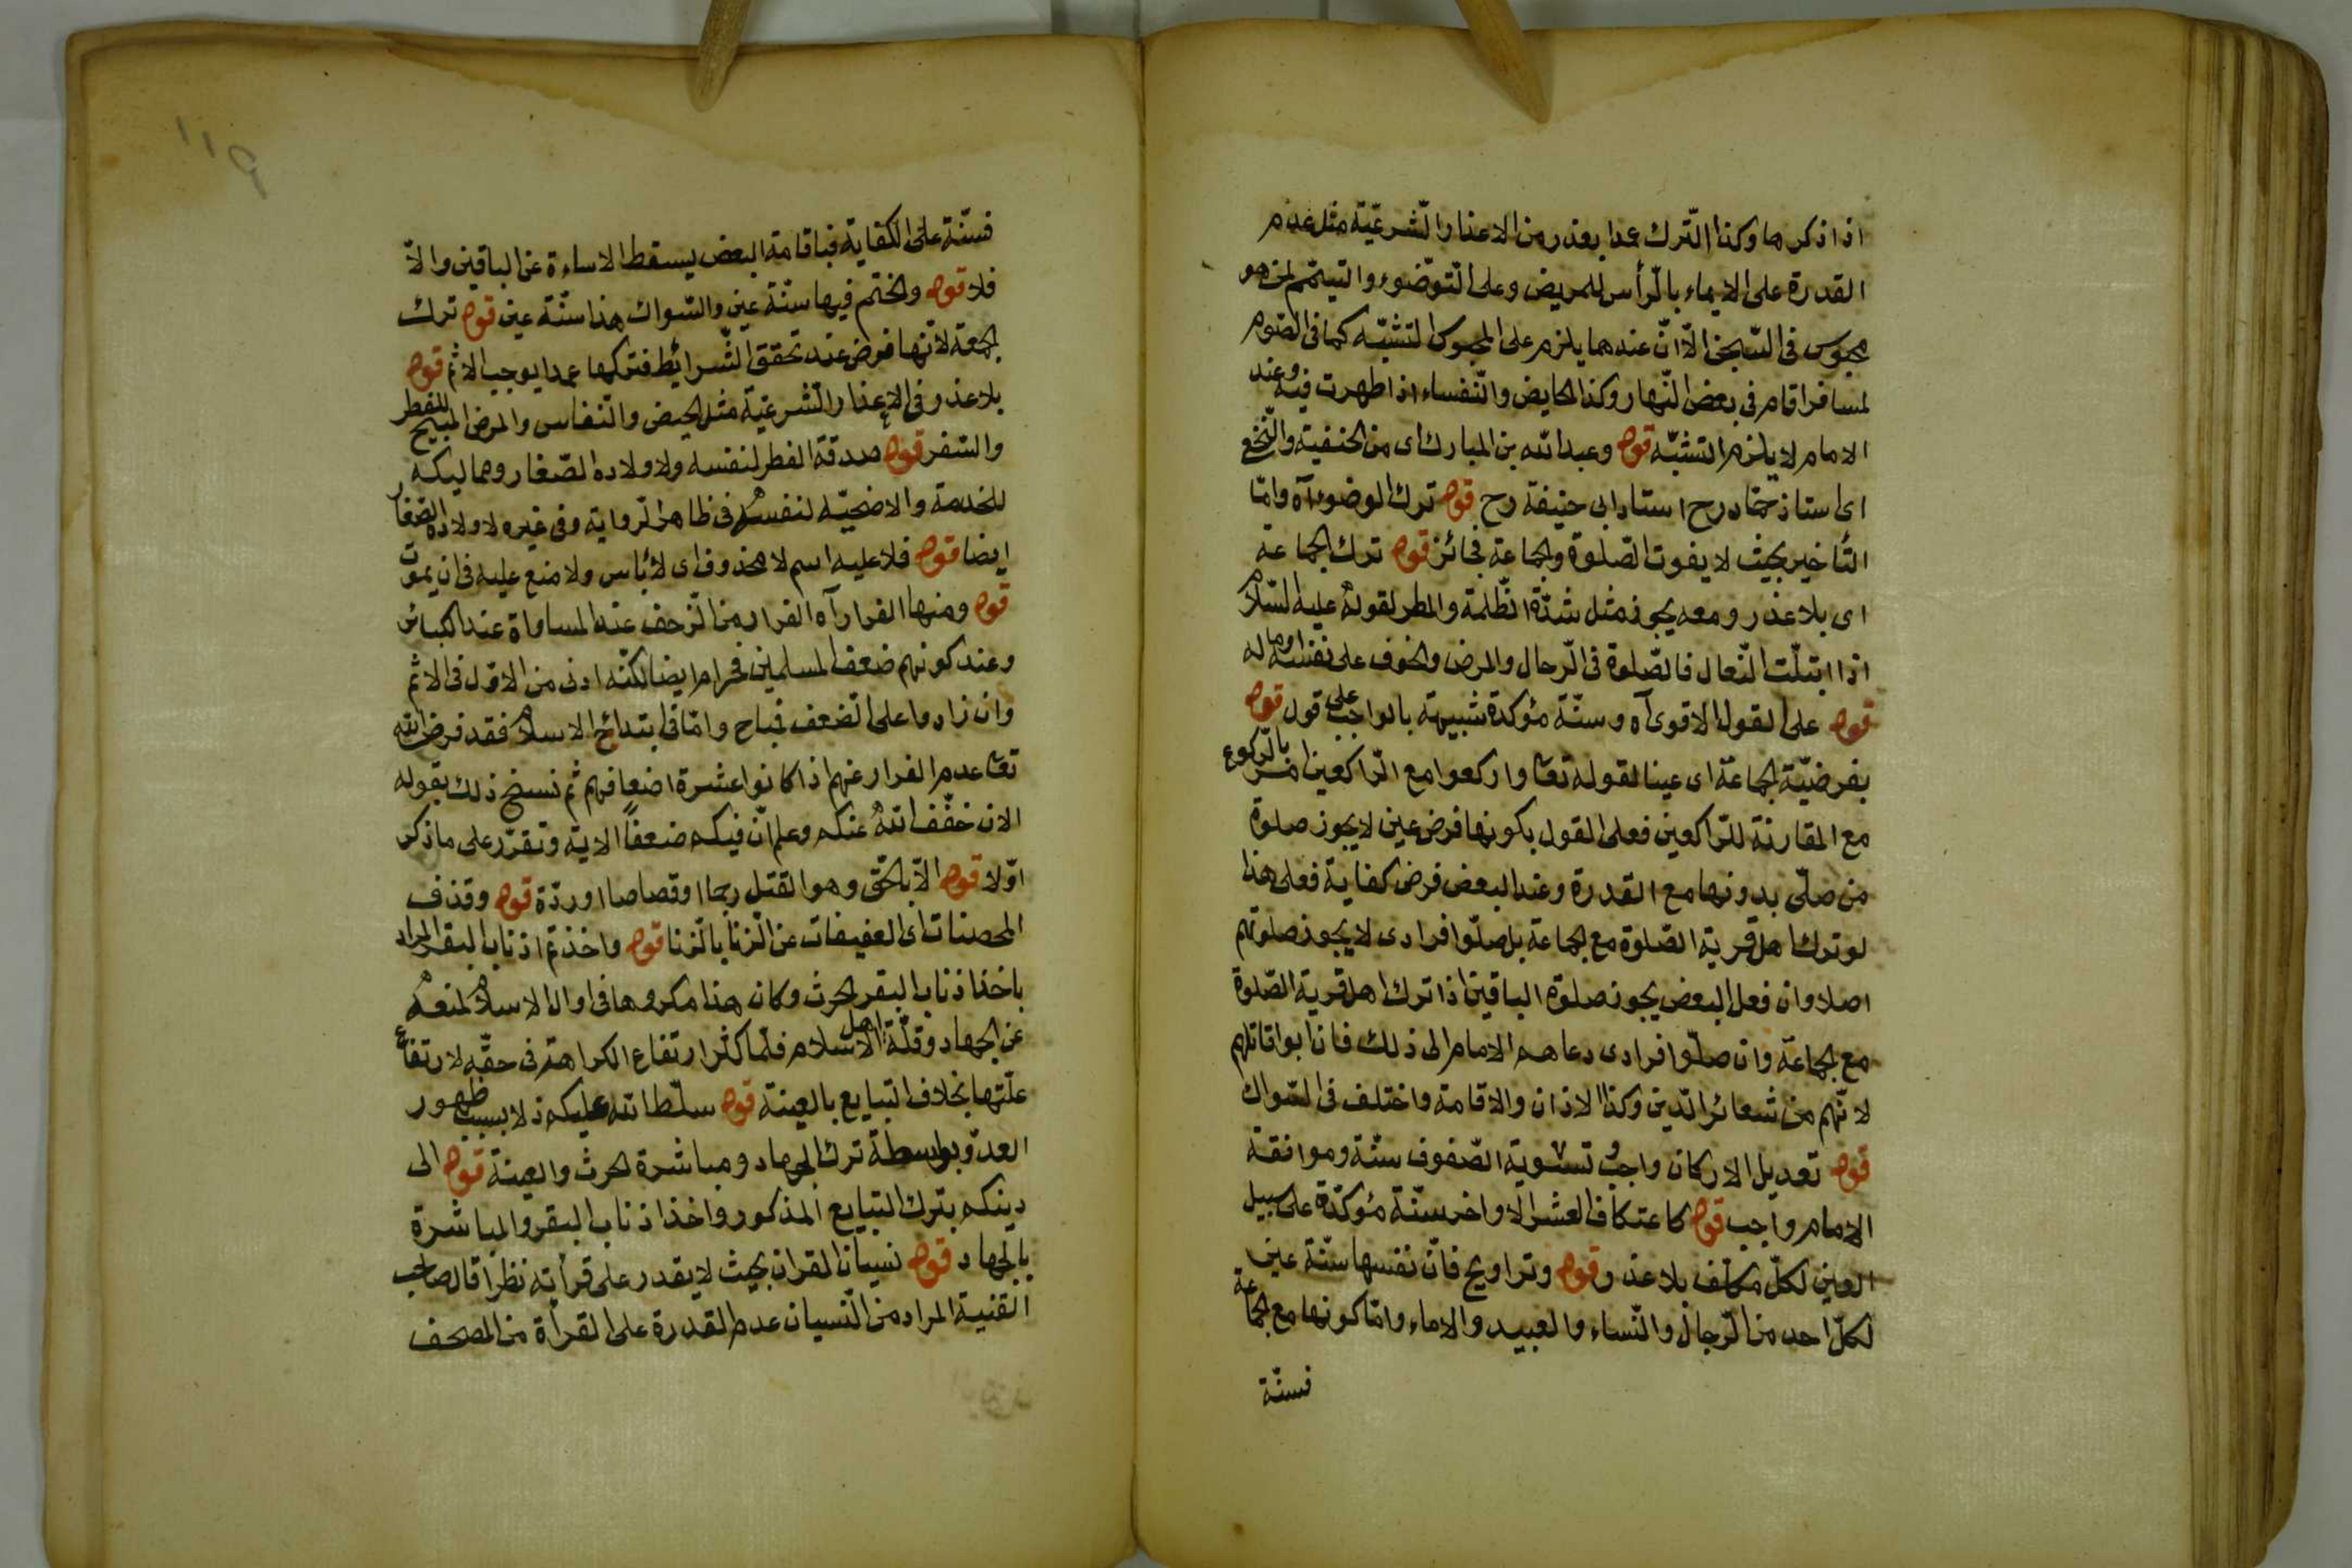 اذا ذكرها وكذا الترك عمدا بعذر من الاعذار الشرعيّة مثل عدم
القدرة على الايماء بالرأس للمريض وعلى التوضوء والتيمّم لمن هو
محبوس فى السجن الّا انّ عندهما يلزم على المحبوس التشبّه كما فى الصوم
لمسافر اقام فى بعض النّهار وكذا الحايض والنّفساء اذا طهرت فيه وعند
الامام لا يلزم التشبّه قوله وعبد الله بن المبارك اى من الحنفية والنّخعى
اى استاذ حمّاد رح استاد ابى حنيفة رح قوله ترك الوضوء آه وامّا
التأخير بحيث لا يفوت الصّلوة والجماعة فجائز قوله ترك الجماعة
اى بلا عذر ومعه يجوز مثل شدّة الظّلمة والمطر لقوله عليه السّلام
اذا ابتلّت النّعال فالصّلوة فى الرّحال والمرض والخوف على نفسه وماله
قوله على القول الاقوى آه وسنّة مؤكدة شبيهة بالواجب على قول قوله
بفرضيّة الجماعة اى عينا لقوله تعا واركعوا مع الرّاكعين امر بالرّكوع
مع المقارنة للرّاكعين فعلى القول بكونها فرض عين لا يجوز صلوة
من صلّى بدونها مع القدرة وعند البعض فرض كفاية فعلى هذا
لو ترك اهل قرية الصّلوة مع الجماعة بل صلّوا فرادى لا يجوز صلوتهم
اصلا وان فعل البعض يجوز صلوة الباقين اذا ترك اهل قرية الصّلوة
مع الجماعة وان صلّوا فرادى دعاهم الامام الى ذلك فان ابوا قاتلهم
لانّهم من شعائر الدّين وكذا الاذان والاقامة واختلف فى السّواك
قوله تعديل الاركان واجب و تسوية الصّفوف سنّة وموافقة
الامام واجب قوله كاعتكاف العشر الاواخر سنّة مؤكدّة على سبيل
العين لكلّ مكلّف بلا عذر قوله وتراويح فانّ نفسها سنّة عين
لكلّ احد من الرّجال والنّساء والعبيد والاماء وامّا كونها مع الجماعة
فسنّة
١١٩
فسنّة على الكفاية فباقامة البعض يسقط الاساءة عن الباقين والّا
فلا قوله والختم فيها سنّة عين والسّواك هذا سنّة عين قوله ترك
الجمعة لانّها فرض عند تحقق الشّرائط فتركها عمدا يوجب الاثم قوله
بلا عذر فى الاعذار الشرعيّة مثل الحيض والنّفاس والمرض المبيح للفطر
والسّفر قوله صدقة الفطر لنفسه ولاولاده الصّغار ومماليكه
للخدمة والاضحيّة لنفسه فى ظاهر الرّواية وفى غيره لاولاده الصّغار
ايضا قوله فلا عليه اسم لا محذوف اى لا بأس ولا منع عليه فى ان يموت
قوله ومنها الفرار آه الفرار من الزّحف عند المساواة عند الكبائر
وعند كونهم ضعف المسلمين فحرام ايضا لكنّه ادنى من الاوّل فى الاثم
وان زادوا على الضّعف فمباح وامّا فى ابتدائ الاسلام فقد فرض الله
تعا عدم الفرار عنهم اذا كانوا عشرة اضعافهم ثم نسخ ذلك بقوله
الان خفّف الله عنكم وعلم انّ فيكم ضعفا الاية وتقرّر على ما ذكر
اوّلا قوله الّا بالحقّ وهو القتل رجما او قصاصا او ردّة قوله وقذف
المحصنات اى العفيفات عن الزّنا بالزّنا قوله واخذتم اذناب البقر المراد
باخذ اذناب البقر الحرث وكان هذا مكروها فى اوائل الاسلام لمنعه
عن الجهاد وقلّة اهل الاسلام فلمّا كثر ارتفاع الكراهة فى حقّه لارتفاع
علّتها بخلاف التبايع بالعينة قوله سلّط الله عليكم ذلا بسبب ظهور
العدّو بواسطة ترك الجهاد ومباشرة الحرث والعينة قوله الى
دينكم بترك التبايع المذكور واخذ اذناب البقر والمباشرة
بالجهاد قوله نسيان القران بحيث لا يقدر على قرأته نظرا قال صاحب
القنية المراد من النّسيان عدم القدرة على القرأة من المصحف